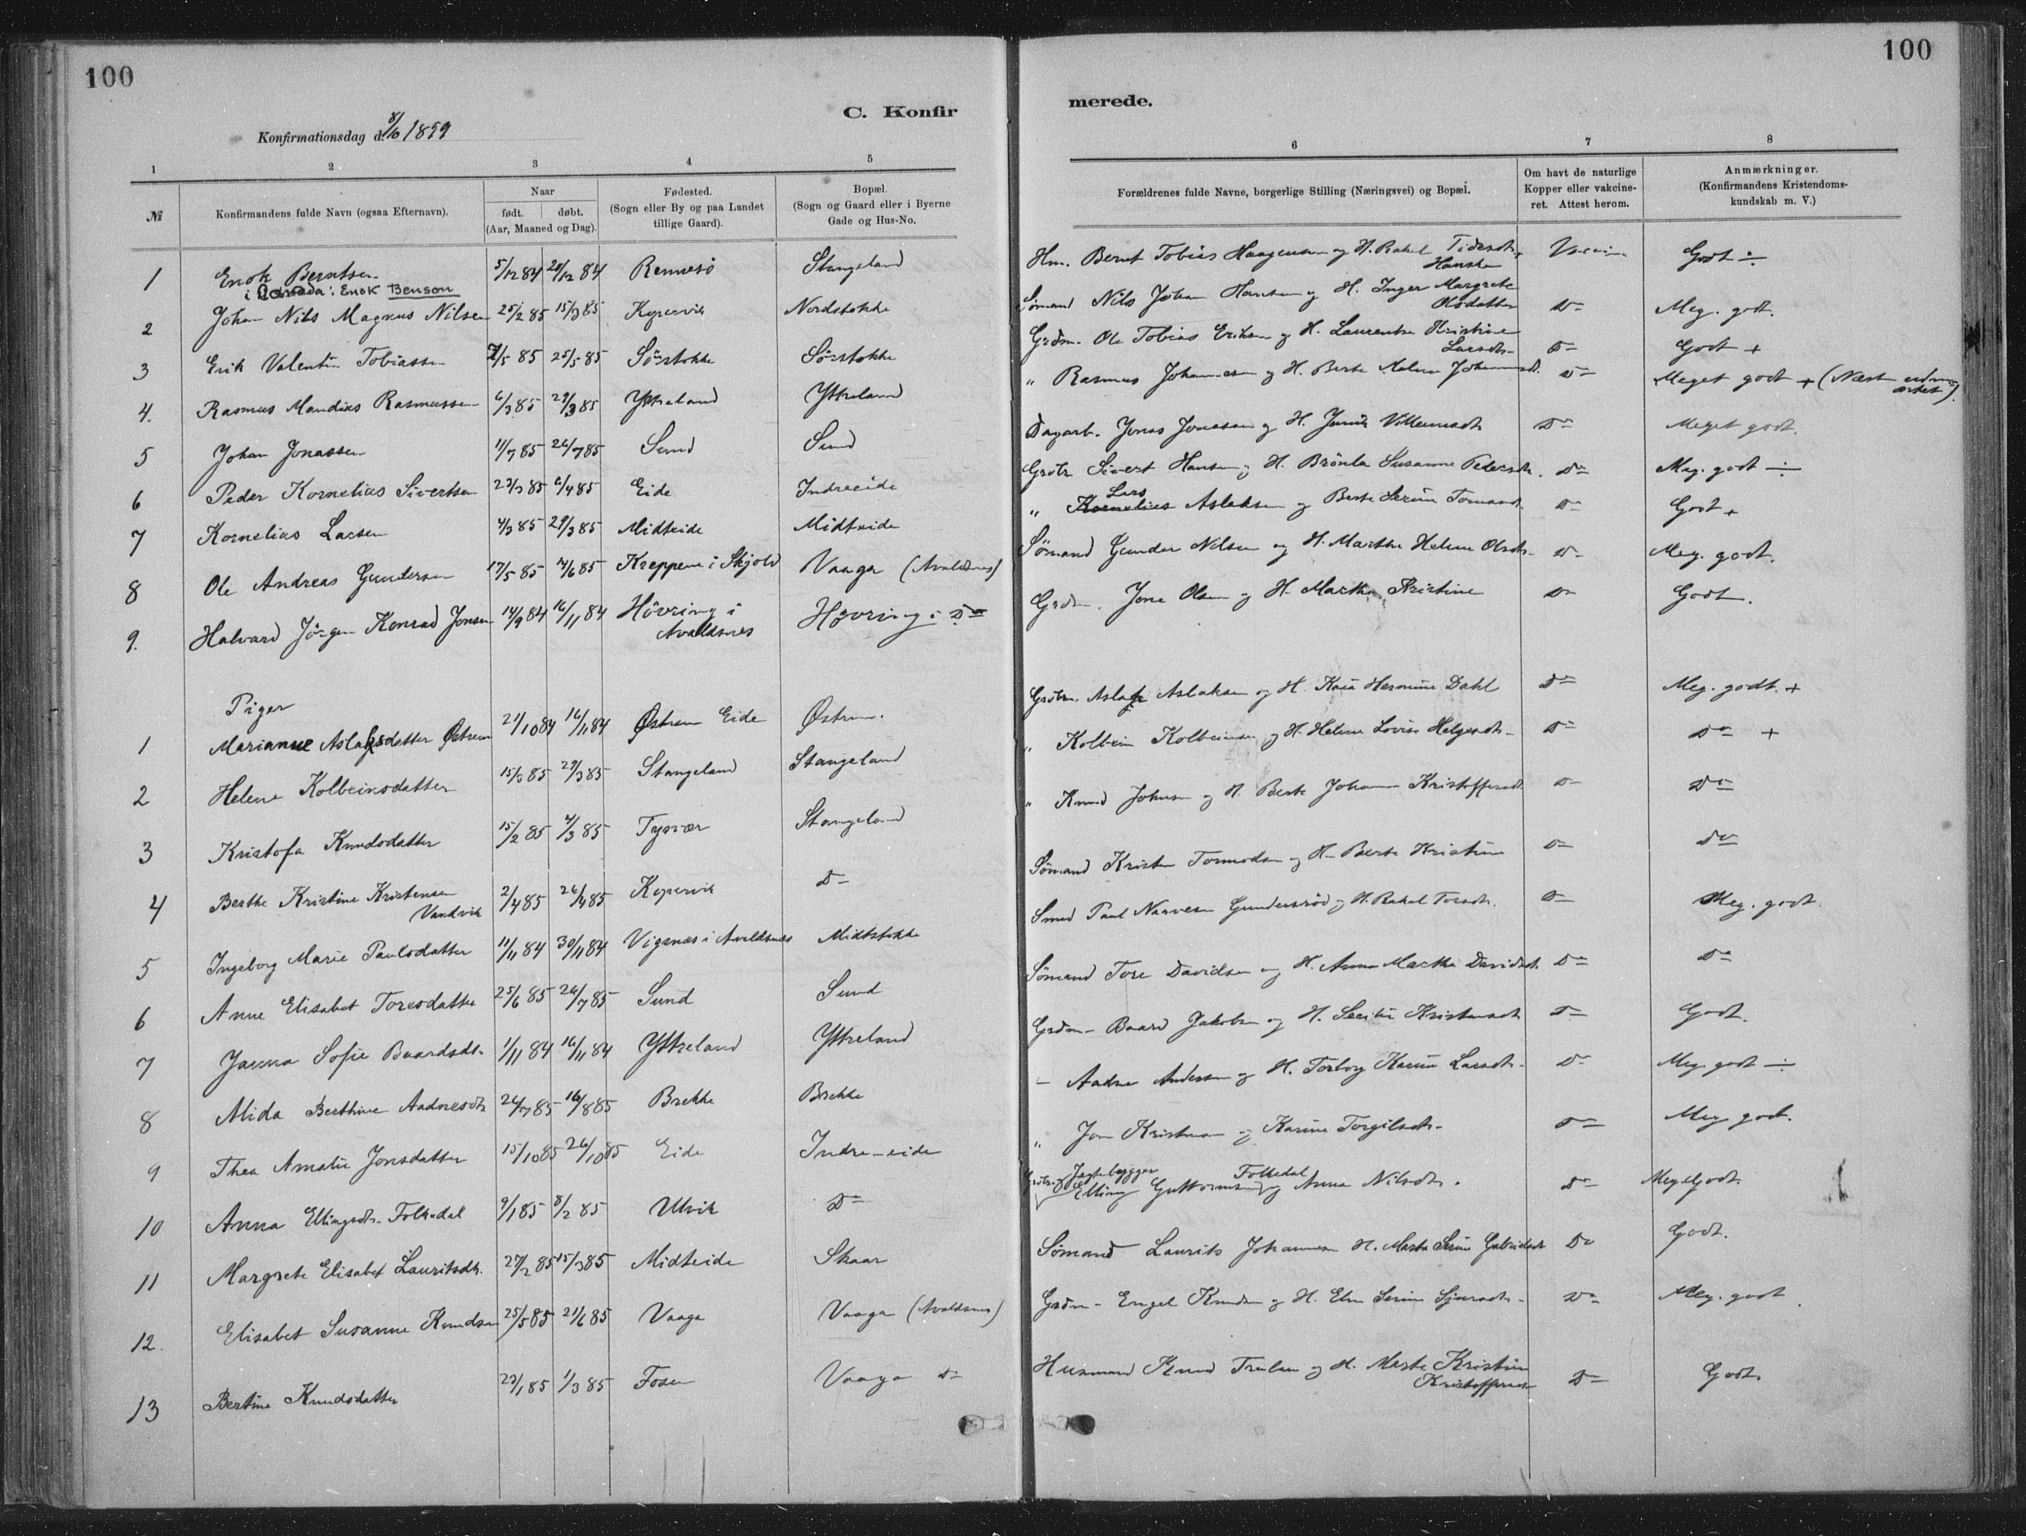 100
100
C. Konfir
merede.
Konfirmationsdag d. 8/10 1899
1 2 3 4 5 6 7 8
№
Konfirmandens fulde Navn (ogsaa Efternavn).
Naar
født. døbt.
(Aar, Maaned og Dag).
Fødested.
(Sogn eller By og paa Landet
tillige Gaard).
Bopæl.
(Sogn og Gaard eller i Byerne
Gade og Hus-No.
Forældrenes fulde Navne, borgerlige Stilling (Næringsvei) og Bopæl.
Om havt de naturlige
Kopper eller vakcine-
ret. Attest herom.
Anmærkninger.
(Konfirmandens Kristendoms-
kundskab m. V.)
1 Enok Berntsen 5/12 84 28/12 84 Rennesö Stangeland Hm. Bernt Tobias Haagensen og H. Rakel Godt ÷
i Canada: Enok Benson
2 Johan Nils Magnus Nilsen 25/2 85 15/3 85 Kopervik Nordstokke Sömand Nils Johan Hansen og H. Inger Margrete Olsdatter Do Meg. godt.
3 Erik Valentin Tobiassen 7/5 85 25/5 85 Sörstokke Sörstokke Grdm. Ole Tobias Eriksen og H. Laurentse Kristine Larsdtr. Do Godt +
4. Rasmus Mandius Rasmussen 6/3 85 29/3 85 Yttreland Yttreland " Rasmus Johannesen og H. Berte Malene Do Meget godt + (Næsten udmærket)
5 Johan Jonassen 11/7 85 26/7 85 Sund Sund Dagarb. Jonas Jonassen og H. Do Meget godt.
6 Peder Kornelius Sivertsen 22/3 85 6/4 85 Eide Indreeide Grdbr. Sivert Hansen og H. Brönla Susanne Pedersdtr. Do Meg. godt ÷
7 Kornelius Larsen 4/3 85 29/3 85 Midteide Midteide " Lars Aslaksen og Berte Serine Do Godt +
8 Ole Andreas Gundersen 17/5 85 14/6 85 Kreppene i Skjold Vaaga (Avaldsnes) Sömand Gunder Nilsen og H. Marthe Helene Olsdtr. Do Meg. godt.
9. Halvard Jörgen Konrad Jonsen 14/9 84 16/11 84 Hövring i Avaldsnes Hövring i Do Grdm. Jone Olsen og H. Marthe Kristine Do Godt.
Piger
1 Marianne Aslaksdatter Østrem 21/10 84 16/11 84 Østrem Eide Østrem. Grdbr. Aslak Aslaksen og H. Kaia Hermine Dahl Do Meg. godt. +
2 Helene Kolbeinsdatter 15/3 85 29/3 85 Stangeland Stangeland " Kolbein Kolbeinsen og H. Helene Lovise Helgesdtr. Do Do +
3 Kristofa Knudsdatter 15/2 85 /3 85 Tysvær Stangeland " Knud Johnsen og H. Berte Johanne Kristoffersd. Do Do
4 Berthe Kristine Kristensen Vandvik 2/4 85 26/4 85 Kopervik Do Sömand Kristen Tormodsen og H. Berte Kristine Do Do
5 Ingeborg Marie Paulsdatter 11/11 84 30/11 84 Vigsnes i Avaldsnes Midtstokke Smed Paul Narvesen Gundersröd og H. Rakel Torsdtr. Do Meg. godt.
6 Anne Elisabet Toresdatter 25/6 85 26/7 85 Sund Sund Sömand Tore Davidsen og H. Anne Marthe Davidsdt. Do Do
7 Janna Sofie Baardsdt. 1/11 84 16/11 84 Yttreland Yttreland Grdm. Baard Jakobsen og H. Kristensdtr. Do Godt.
8 Alida Berthine Aadnesdtr 26/7 85 16/8 85 Brekke Brekke " Aadne Andersen og H. Torborg Karine Larsdtr. Do Meg. godt ÷
9 Thea Amalie Jonsdatter 15/10 85 26/10 85 Eide Indre-eide " Jon Kristensen og Karine Torgilsdtr. Do Meg. godt.
10 Anna Ellingsdtr. Folkedal 9/1 85 8/2 85 Ulvik Do Jagtebygger Elling Guttormsen Folkedal og Anna Nilsdtr. Do Meget godt.
11 Margrete Elisabet Lauritsdtr. 27/2 85 15/3 85 Midteide Skaar Sömand Laurits Johannesen H. Marta Serine Gabrielsdtr Do Godt.
12. Elisabet Susanne Knudsen 25/5 85 21/6 85 Vaaga Vaaga (Avaldsnes) Grdm. Engel Knudsen og H. Elen Serine Do Meg. godt
13 Bertine Knudsdatter 23/1 85 1/3 85 Fosen Vaaga Do Husmand Knud og H. Marte Kristine Kristoffersdtr Do Godt.